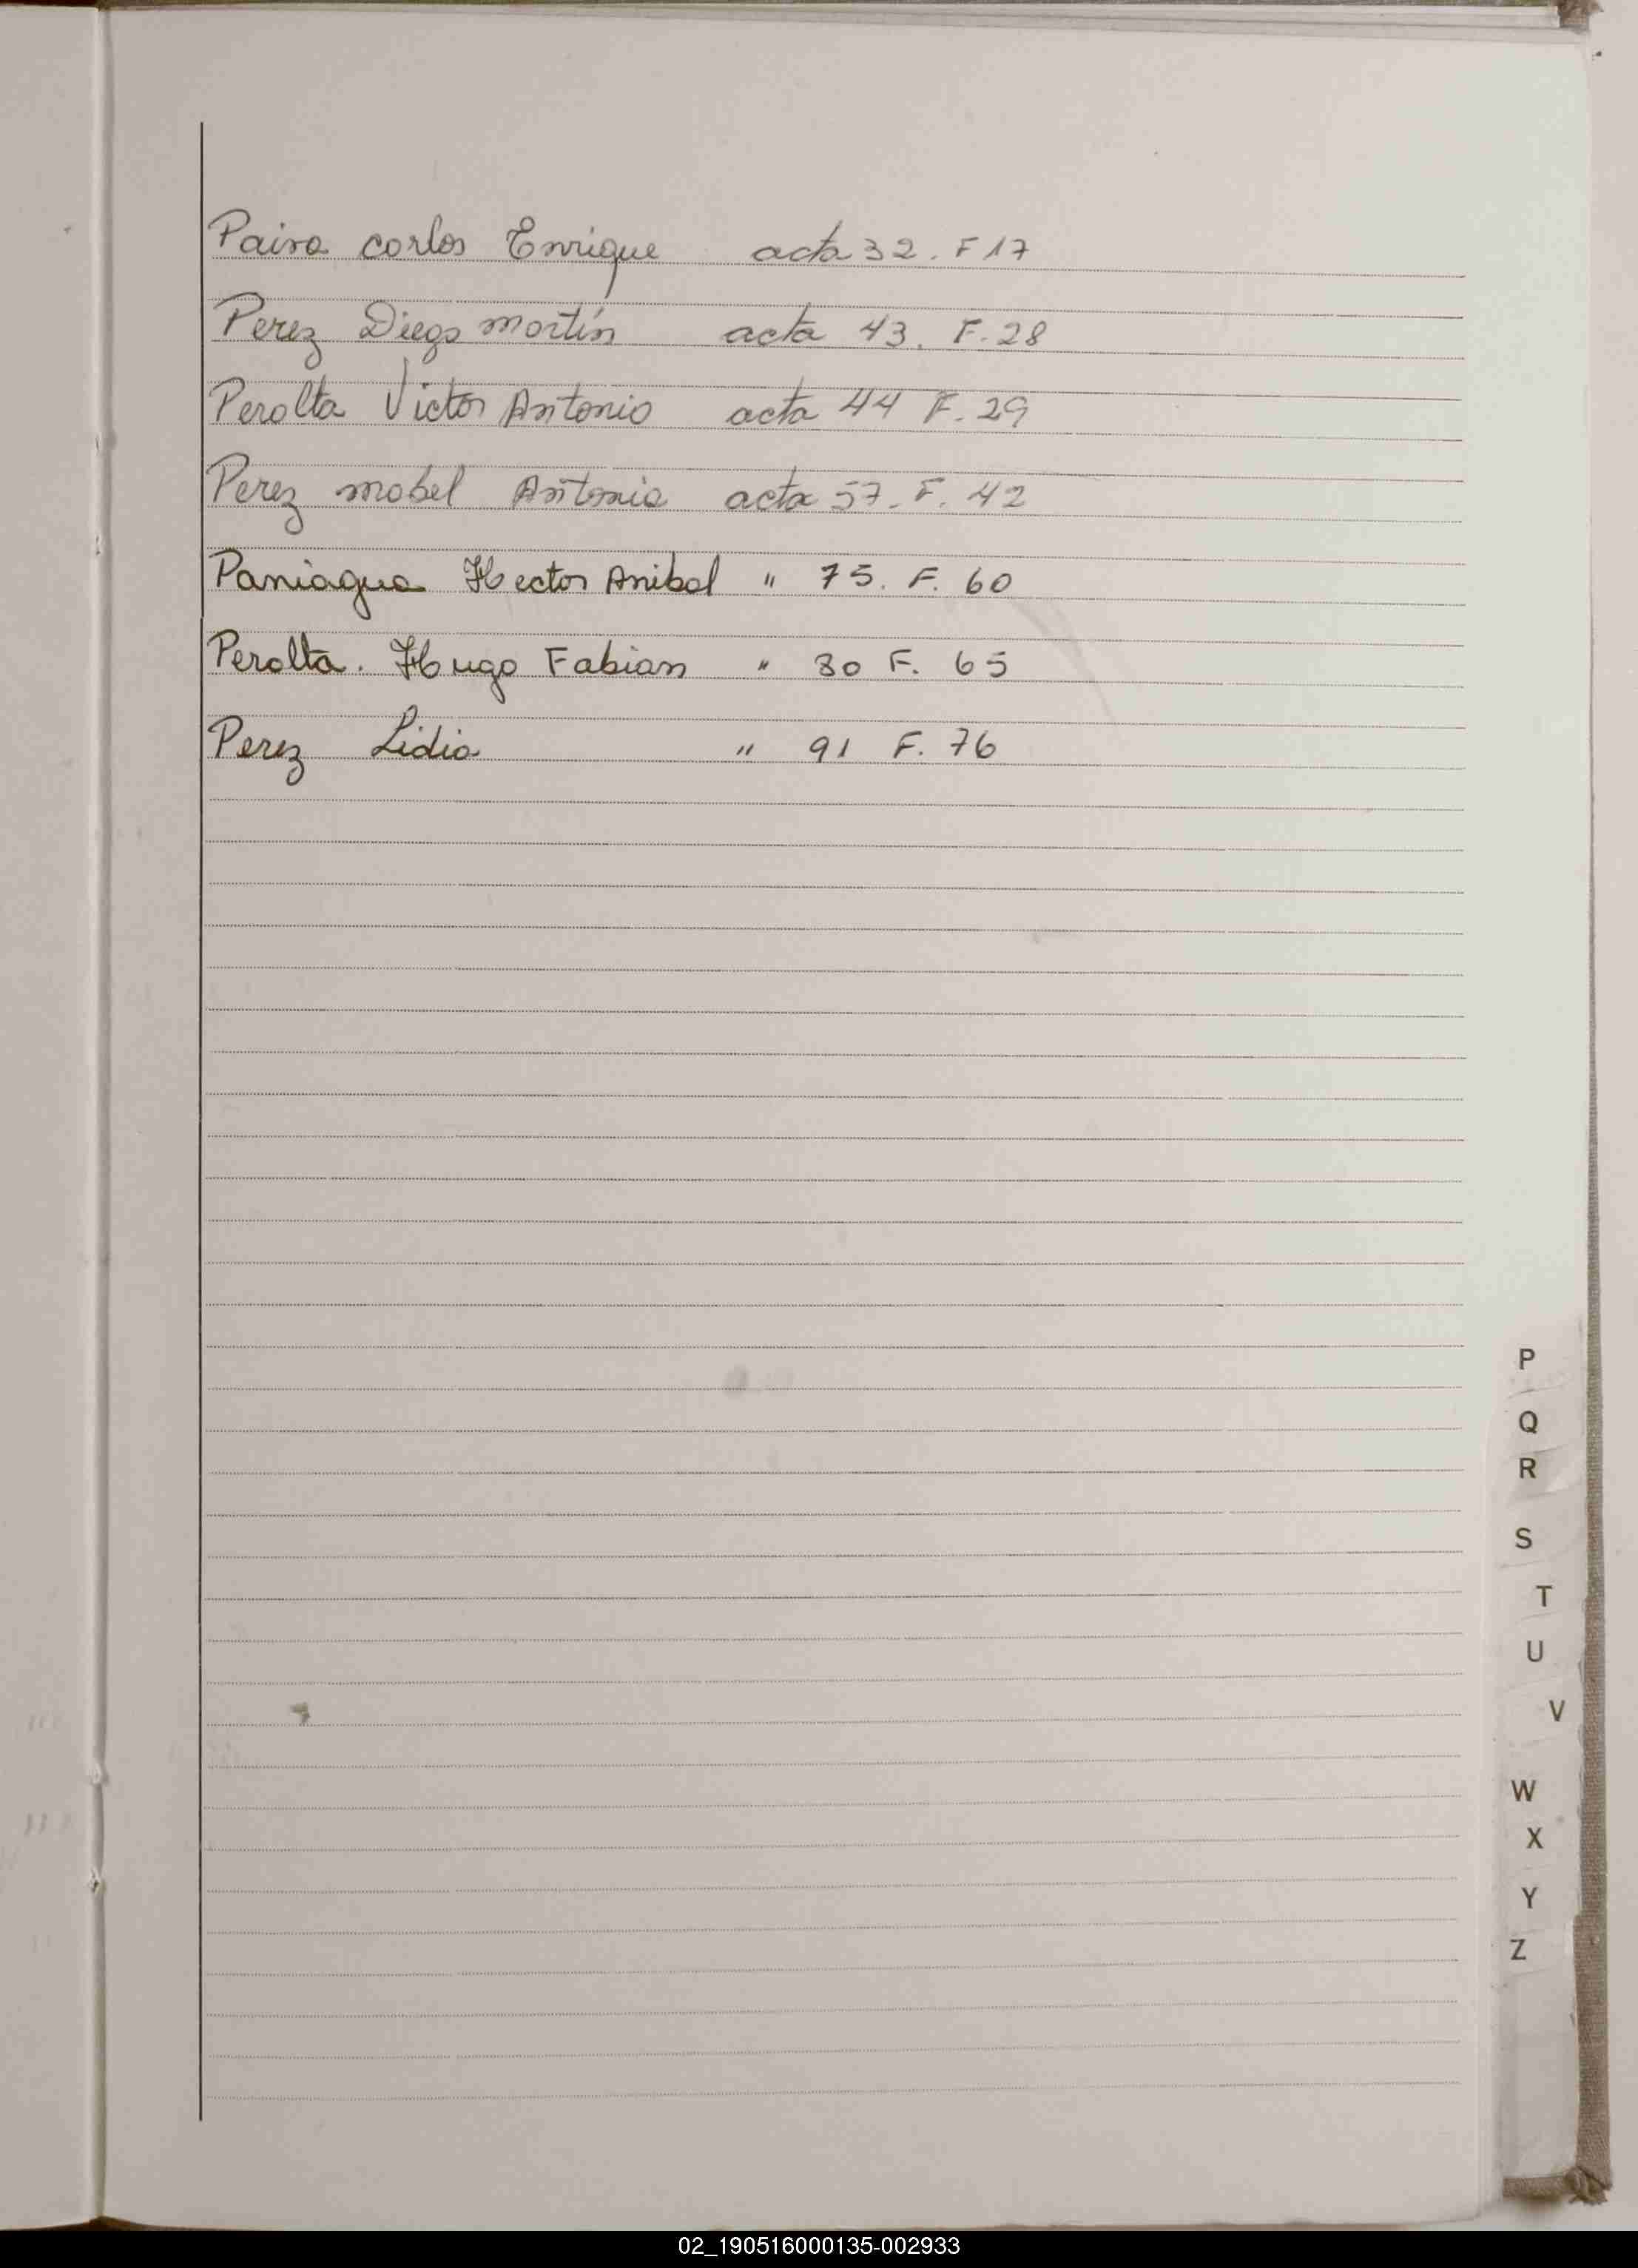 Paiva carlos Enrique acta 32. F 17
Perez Diego martín acta 43. F. 28
Peralta Victor Antonio acta 44 F. 29
Perez mabel Antonia acta 57. F. 42
Paniagua Hector Anibal " 75. F. 60
Peralta. Hugo Fabian " 80 F. 65
Perez Lidia " 91 F. 76
P
Q
R
S
T
U
V
W
X
Y
Z
02_190516000135-002933